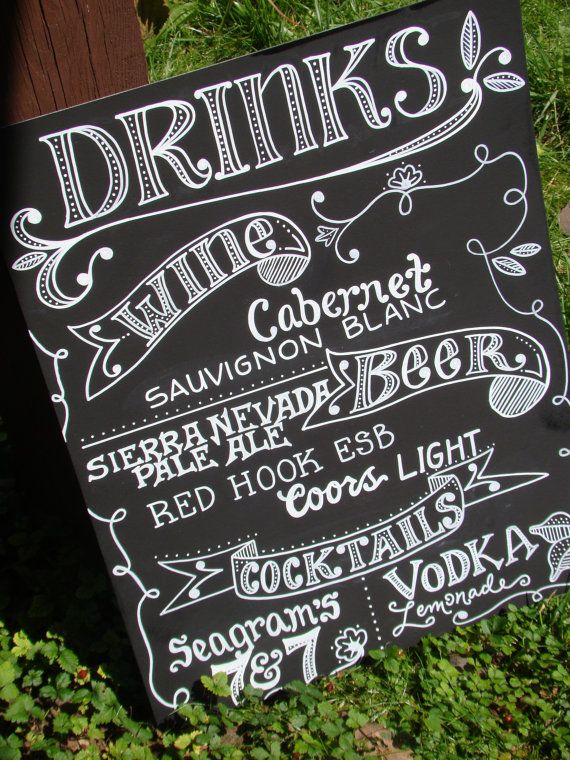 DRINKS
WINE
Cabernet
SAUVIGNON BLANC
BEER
SIERRA NEVADA
PALE ALE
RED HOOK ESB
Coors LIGHT
COCKTAILS
Seagram's
7 & 7
VODKA
Lemonade